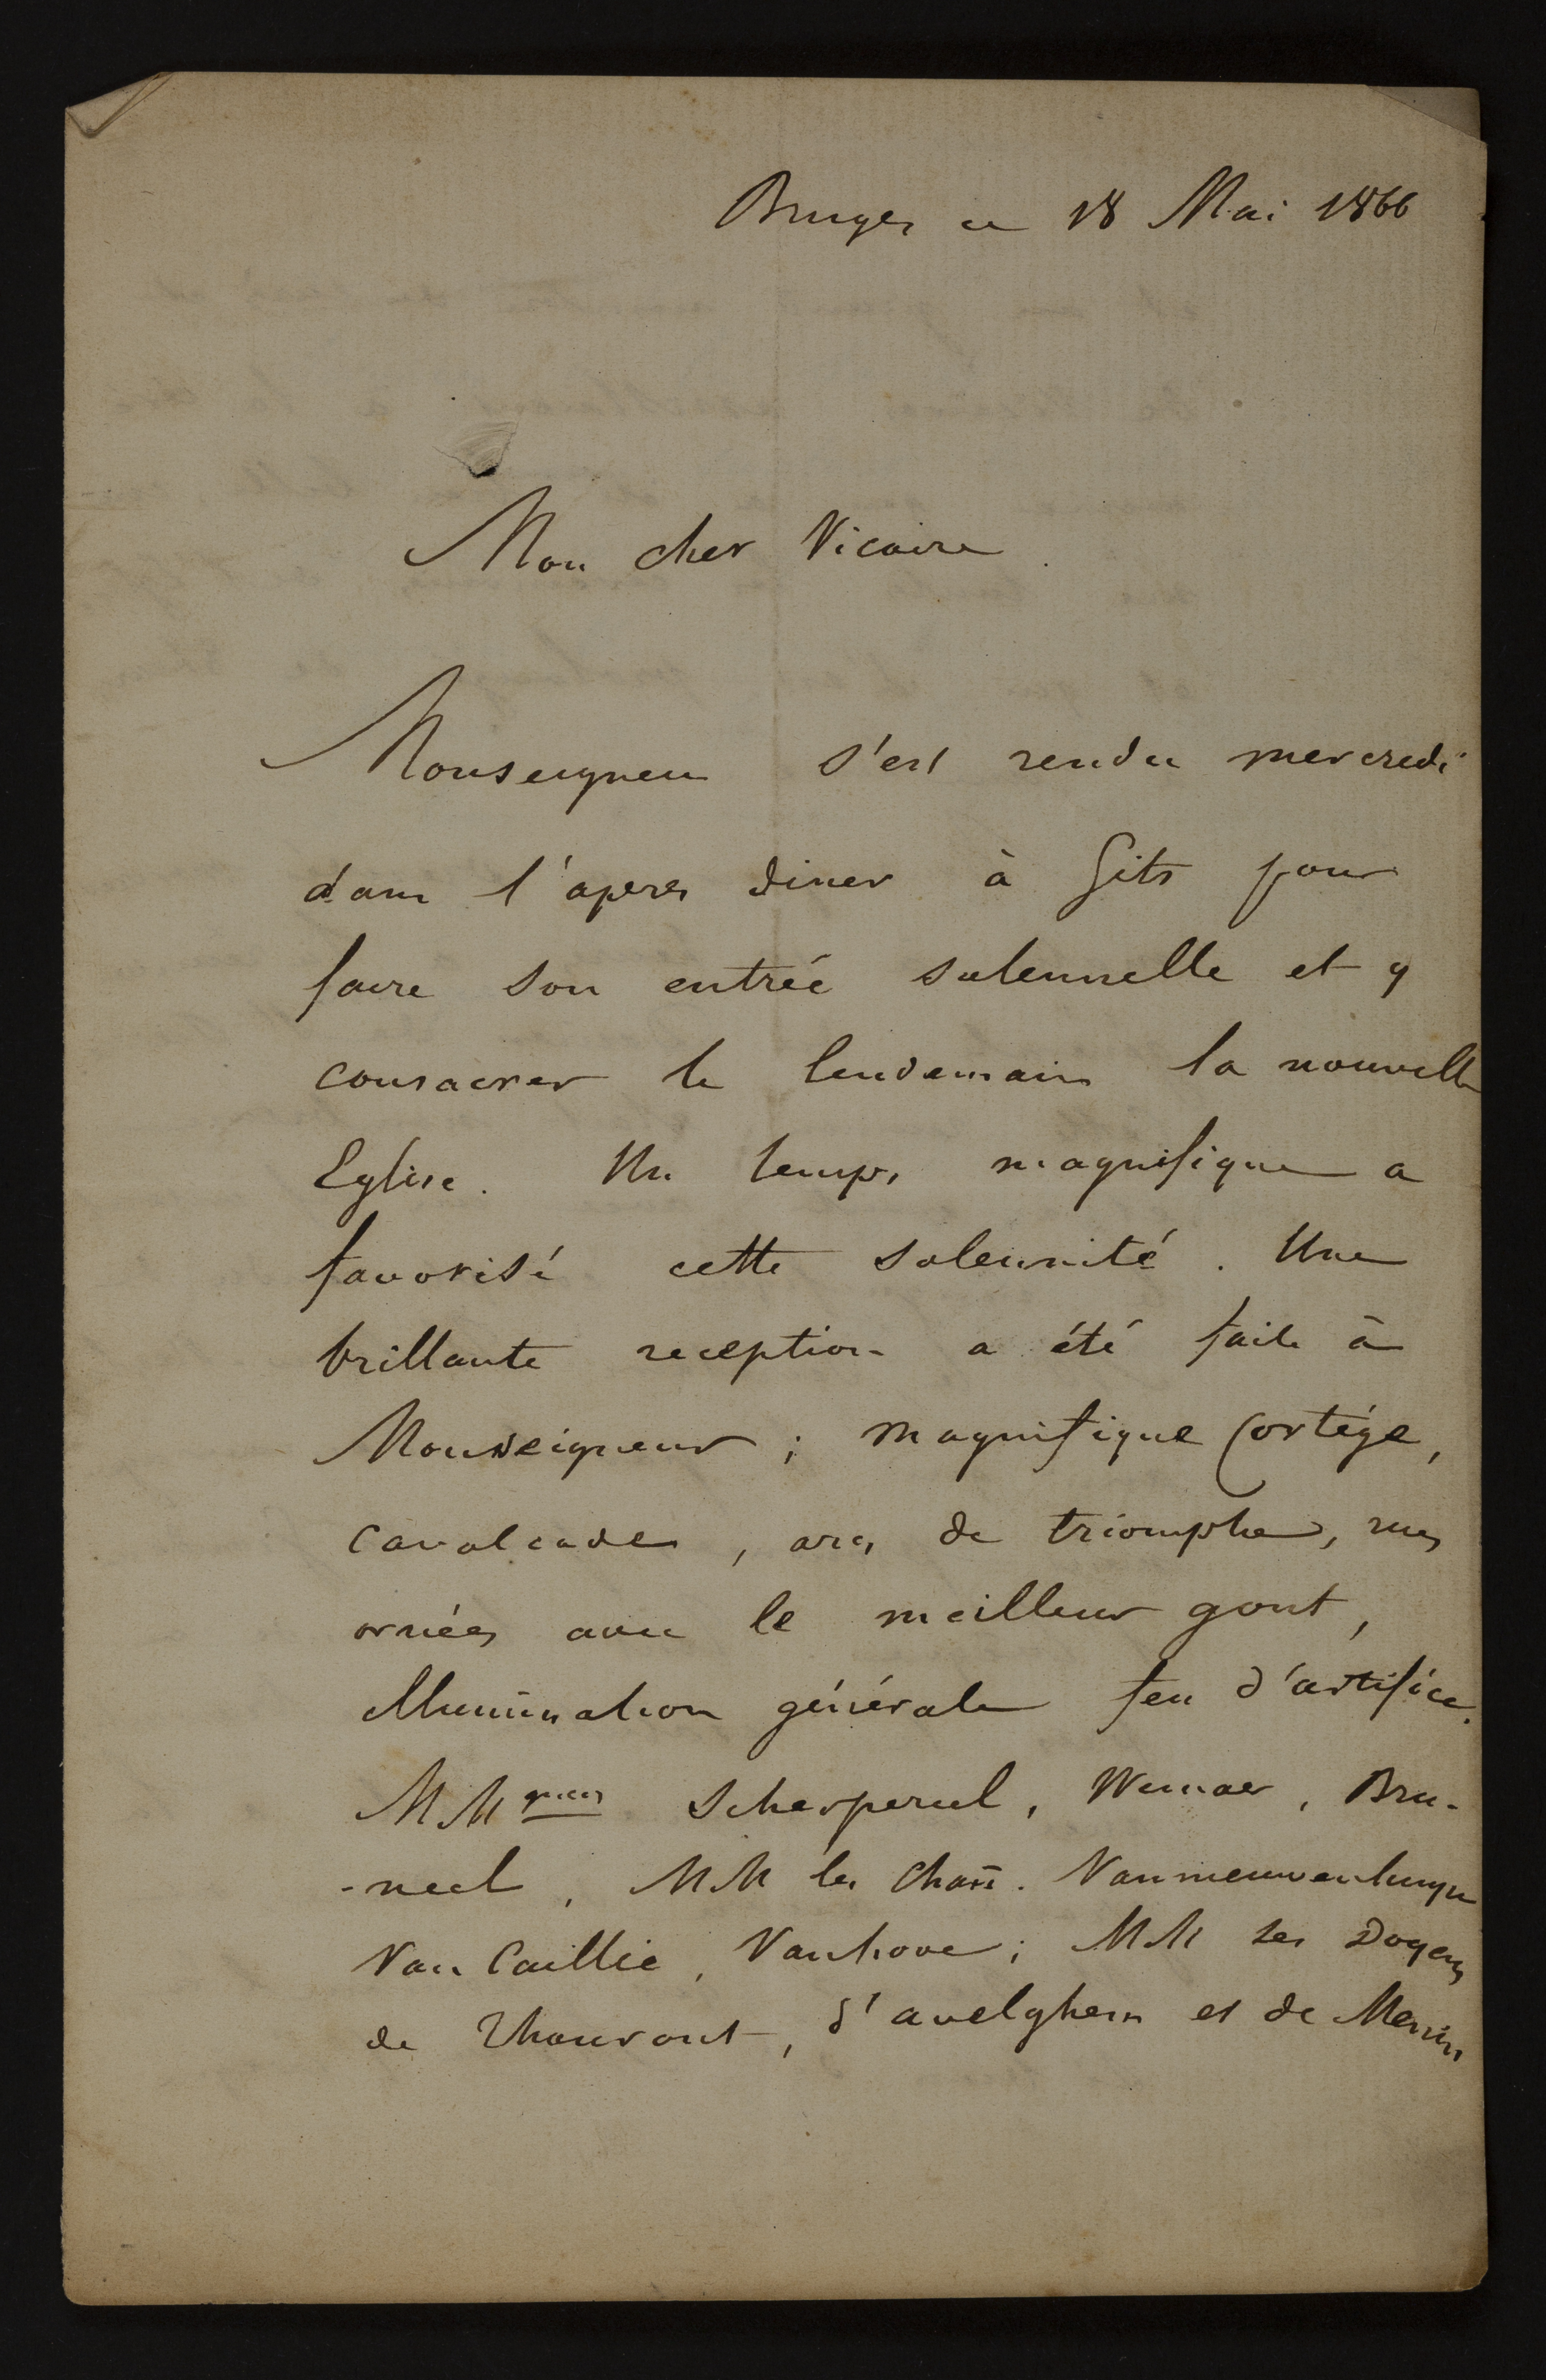 Bruges ce 18 Mai 1866
Mon cher Vicaire
Monseigneur s'est rendu mercredi
dans l'apres diner à Gits pour
faire son entrée solennelle et y
consacrer le lendemain la nouvelle
Eglise. Un temps magnifique a
favorisé cette solennité. Une
brillante reception a été faite à
Monseigneur ; magnifique Cortège,
cavalcades, arcs de triomphe, rues
ornées avec le meilleur gout,
illumination générale feu d'artifice.
MM Scherpereel, Wemaer, Bru-
-neel, MM les Chañ. Vannieuwenhuyse
Van Caillie, Vanhove ; MM les Doyens
de Thourout, d'avelghem et de Menin